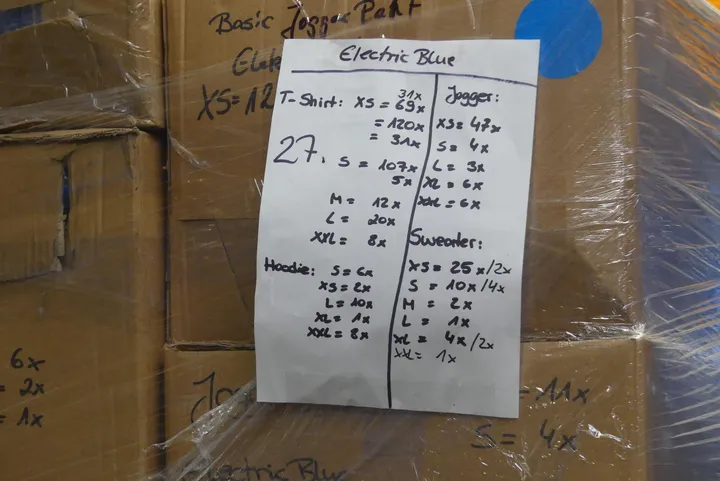 Basic Jogger Pant
XS=12
Electric Blue
T-Shirt: XS = 69x
31x
= 120x
= 31x
27.
S = 107x
5x
M = 12x
L = 20x
XXL = 8x
Hoodie: S = 6x
XS = 2x
L = 10x
XL = 1x
XXL = 8x
Jogger:
XS = 47x
S = 4x
L = 3x
XL = 6x
XXL = 6x
Sweater:
XS = 25x/2x
S = 10x/4x
M = 2x
L = 1x
XL = 4x/2x
XXL = 1x
6x
= 2x
= 1x
Jo
= 11x
S = 4x
Electric Blue